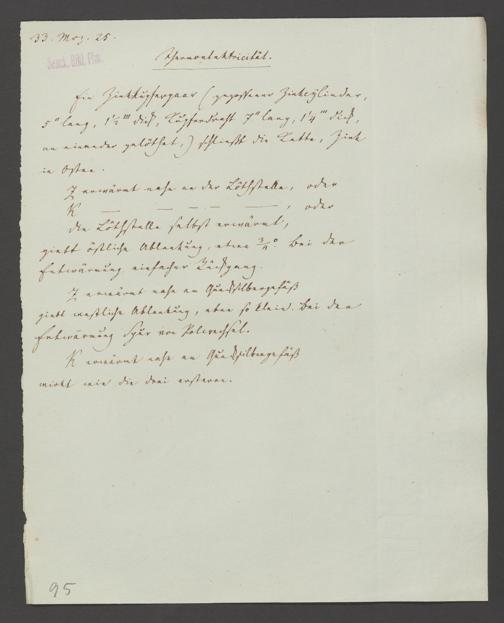 33. Mrz. 25.
Senck. Bibl. Ffm.
Thermoelektricität.
Ein Zinkkupferpaar (gegossener Zinkcylinder,
5" lang, 1½''' dick, Kupferdraht 7" lang, 1¼''' dick,
an einander gelöthet,) schliesst die Kette, Zink
in Osten.
Z erwärmt nahe an der Löthstelle, oder
K — — — —, oder
die Löthstelle selbst erwärmt,
giebt östliche Ablenkung, etwa ¾°. Bei der
Entwärmung einfacher Rückgang.
Z erwärmt nahe am Quecksilbergefäß
giebt westliche Ablenkung, eben so klein. Bei der
Entwärmung Spur von Polwechsel.
K erwärmt nahe am Quecksilbergefäß
wirkt wie die drei ersteren.
95